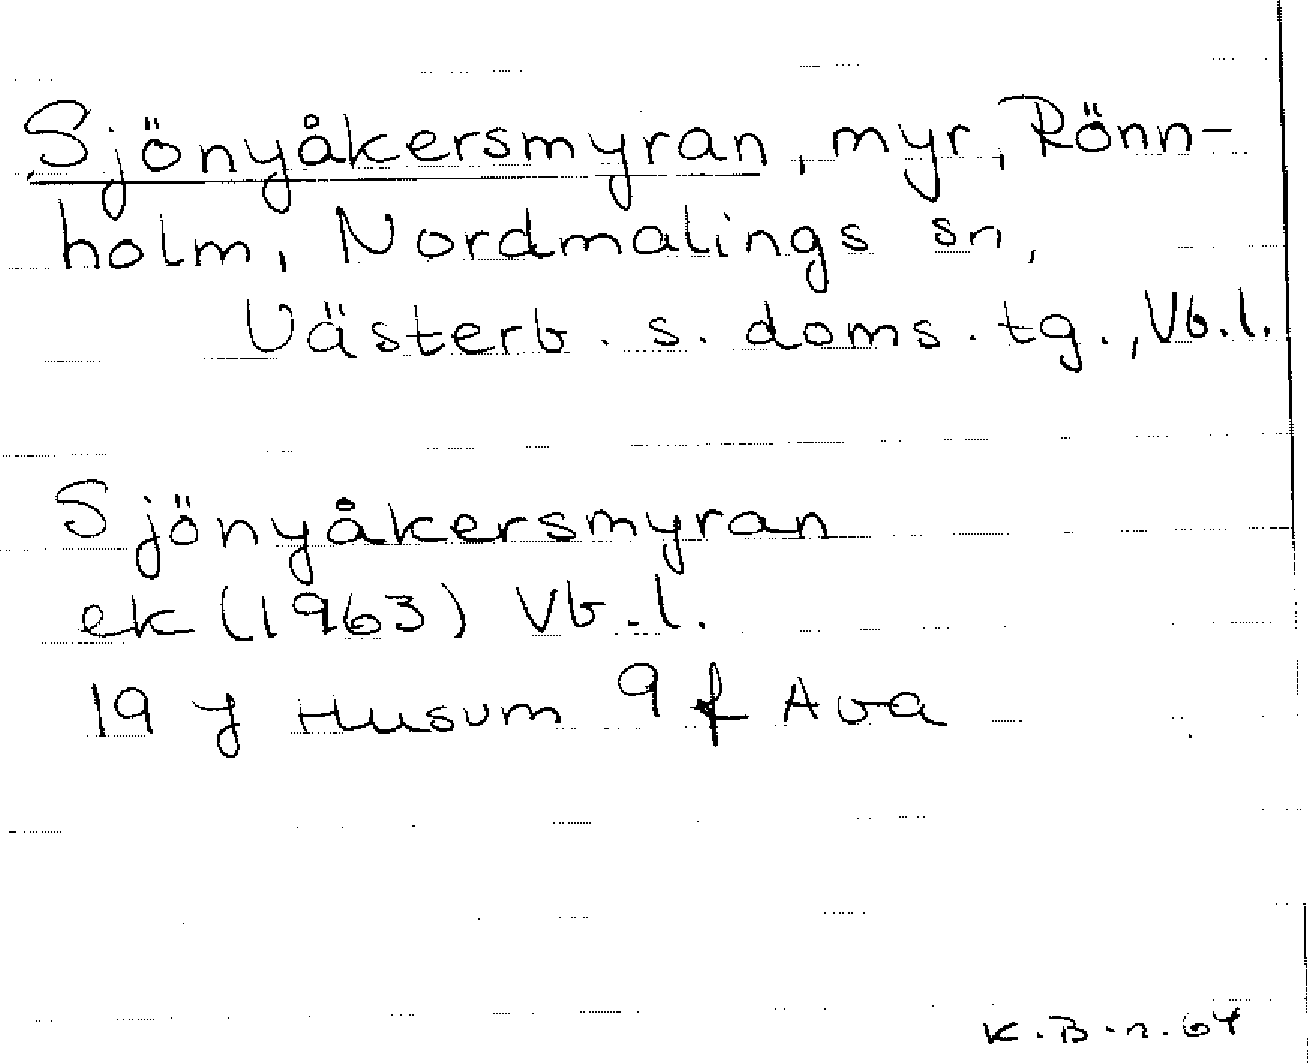 Sjönyåkersmyran, myr, Rönn-
holm, Nordmalings sn,
Västerb. s. doms. tg., Vb.l.
Sjönyåkersmyran
ek (1963) Vb.l.
19 J Husum 9 f Ava
K.B-n.64